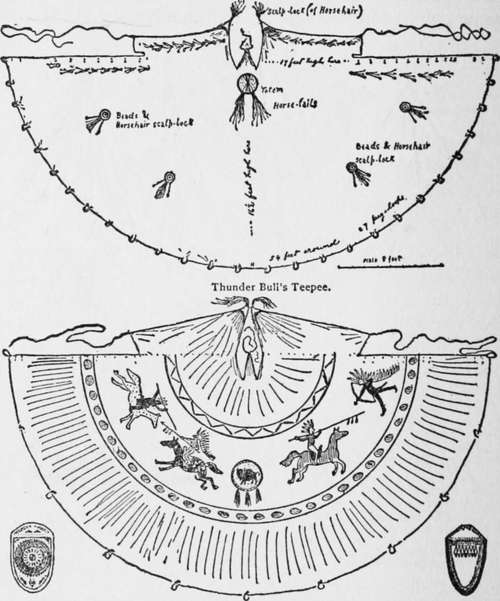 Scalp-lock (of Horsehair)
17 feet high here
Totem
Horse-tails
Beads &
Horsehair scalp-lock
Beads & Horsehair
scalp-lock
feet high here
54 feet around
27 peg-loops
Scale 8 feet
Thunder Bull's Teepee.